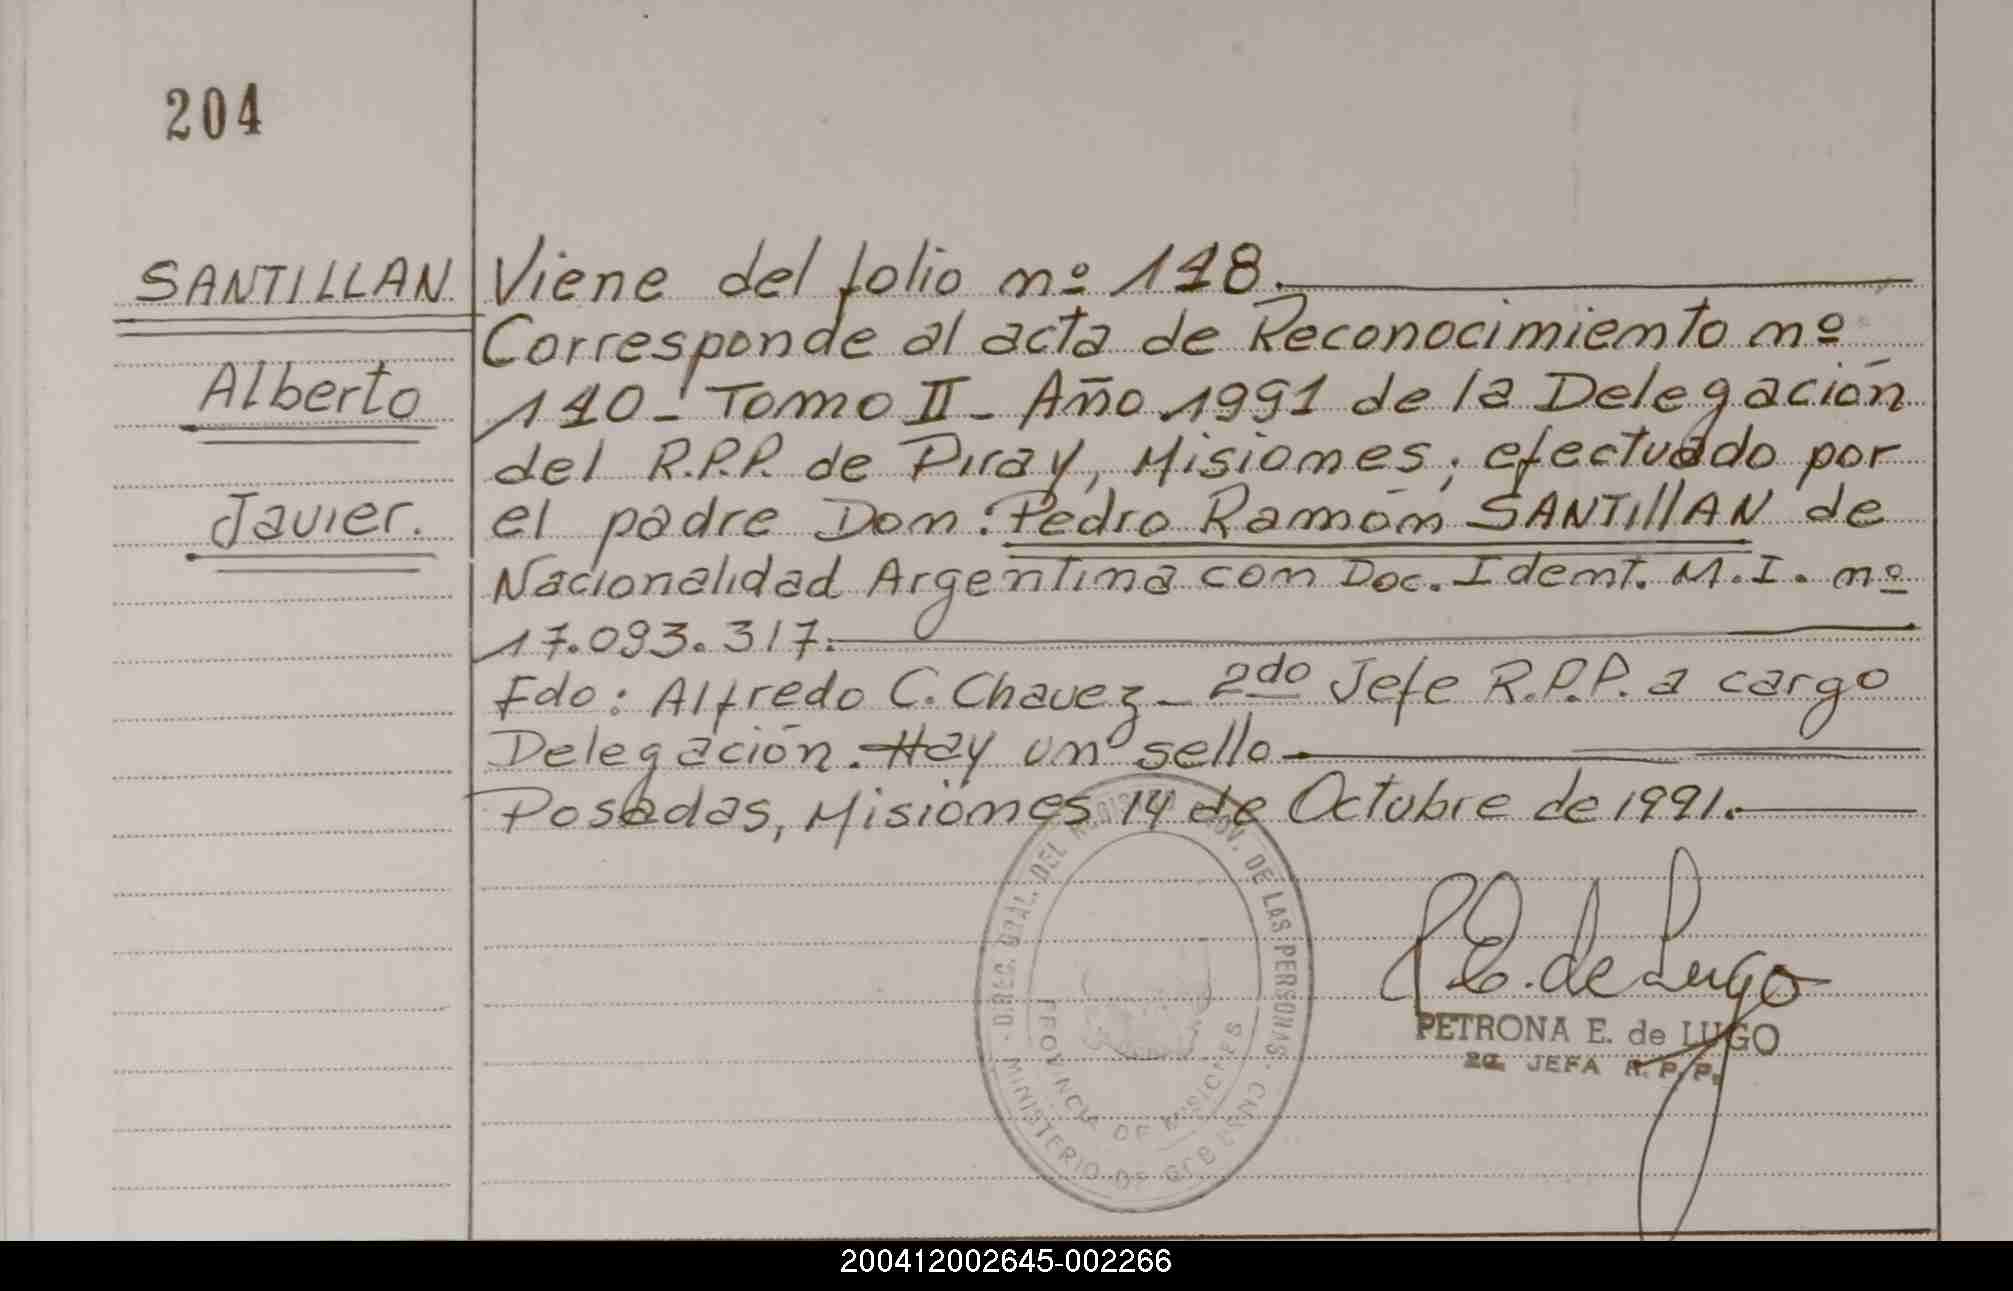 204
SANTILLAN
Alberto
Javier.
Viene del folio nº 118.
Corresponde al acta de Reconocimiento nº
110 - Tomo II - Año 1991 de la Delegación
del R.P.P. de Piray, Misiones, efectuado por
el padre Don: Pedro Ramón SANTIllAN de
Nacionalidad Argentina con Doc. Ident. M.I. nº
17.093.317.
Fdo: Alfredo C. Chavez - 2do Jefe R.P.P. a cargo
Delegación. Hay un sello
Posadas, Misiones 14 de Octubre de 1991.
DIREC. GRAL. DEL REGISTRO PROV. DE LAS PERSONAS
MINISTERIO DE GOBIERNO
PROVINCIA DE MISIONES
P.E. de Lugo
PETRONA E. de LUGO
2a. JEFA R.P.P.
200412002645-002266